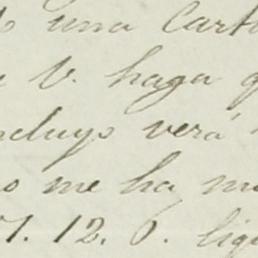 una Cart
V. haga q
ncluyo verá
o me ha m
7. 12. P. lig